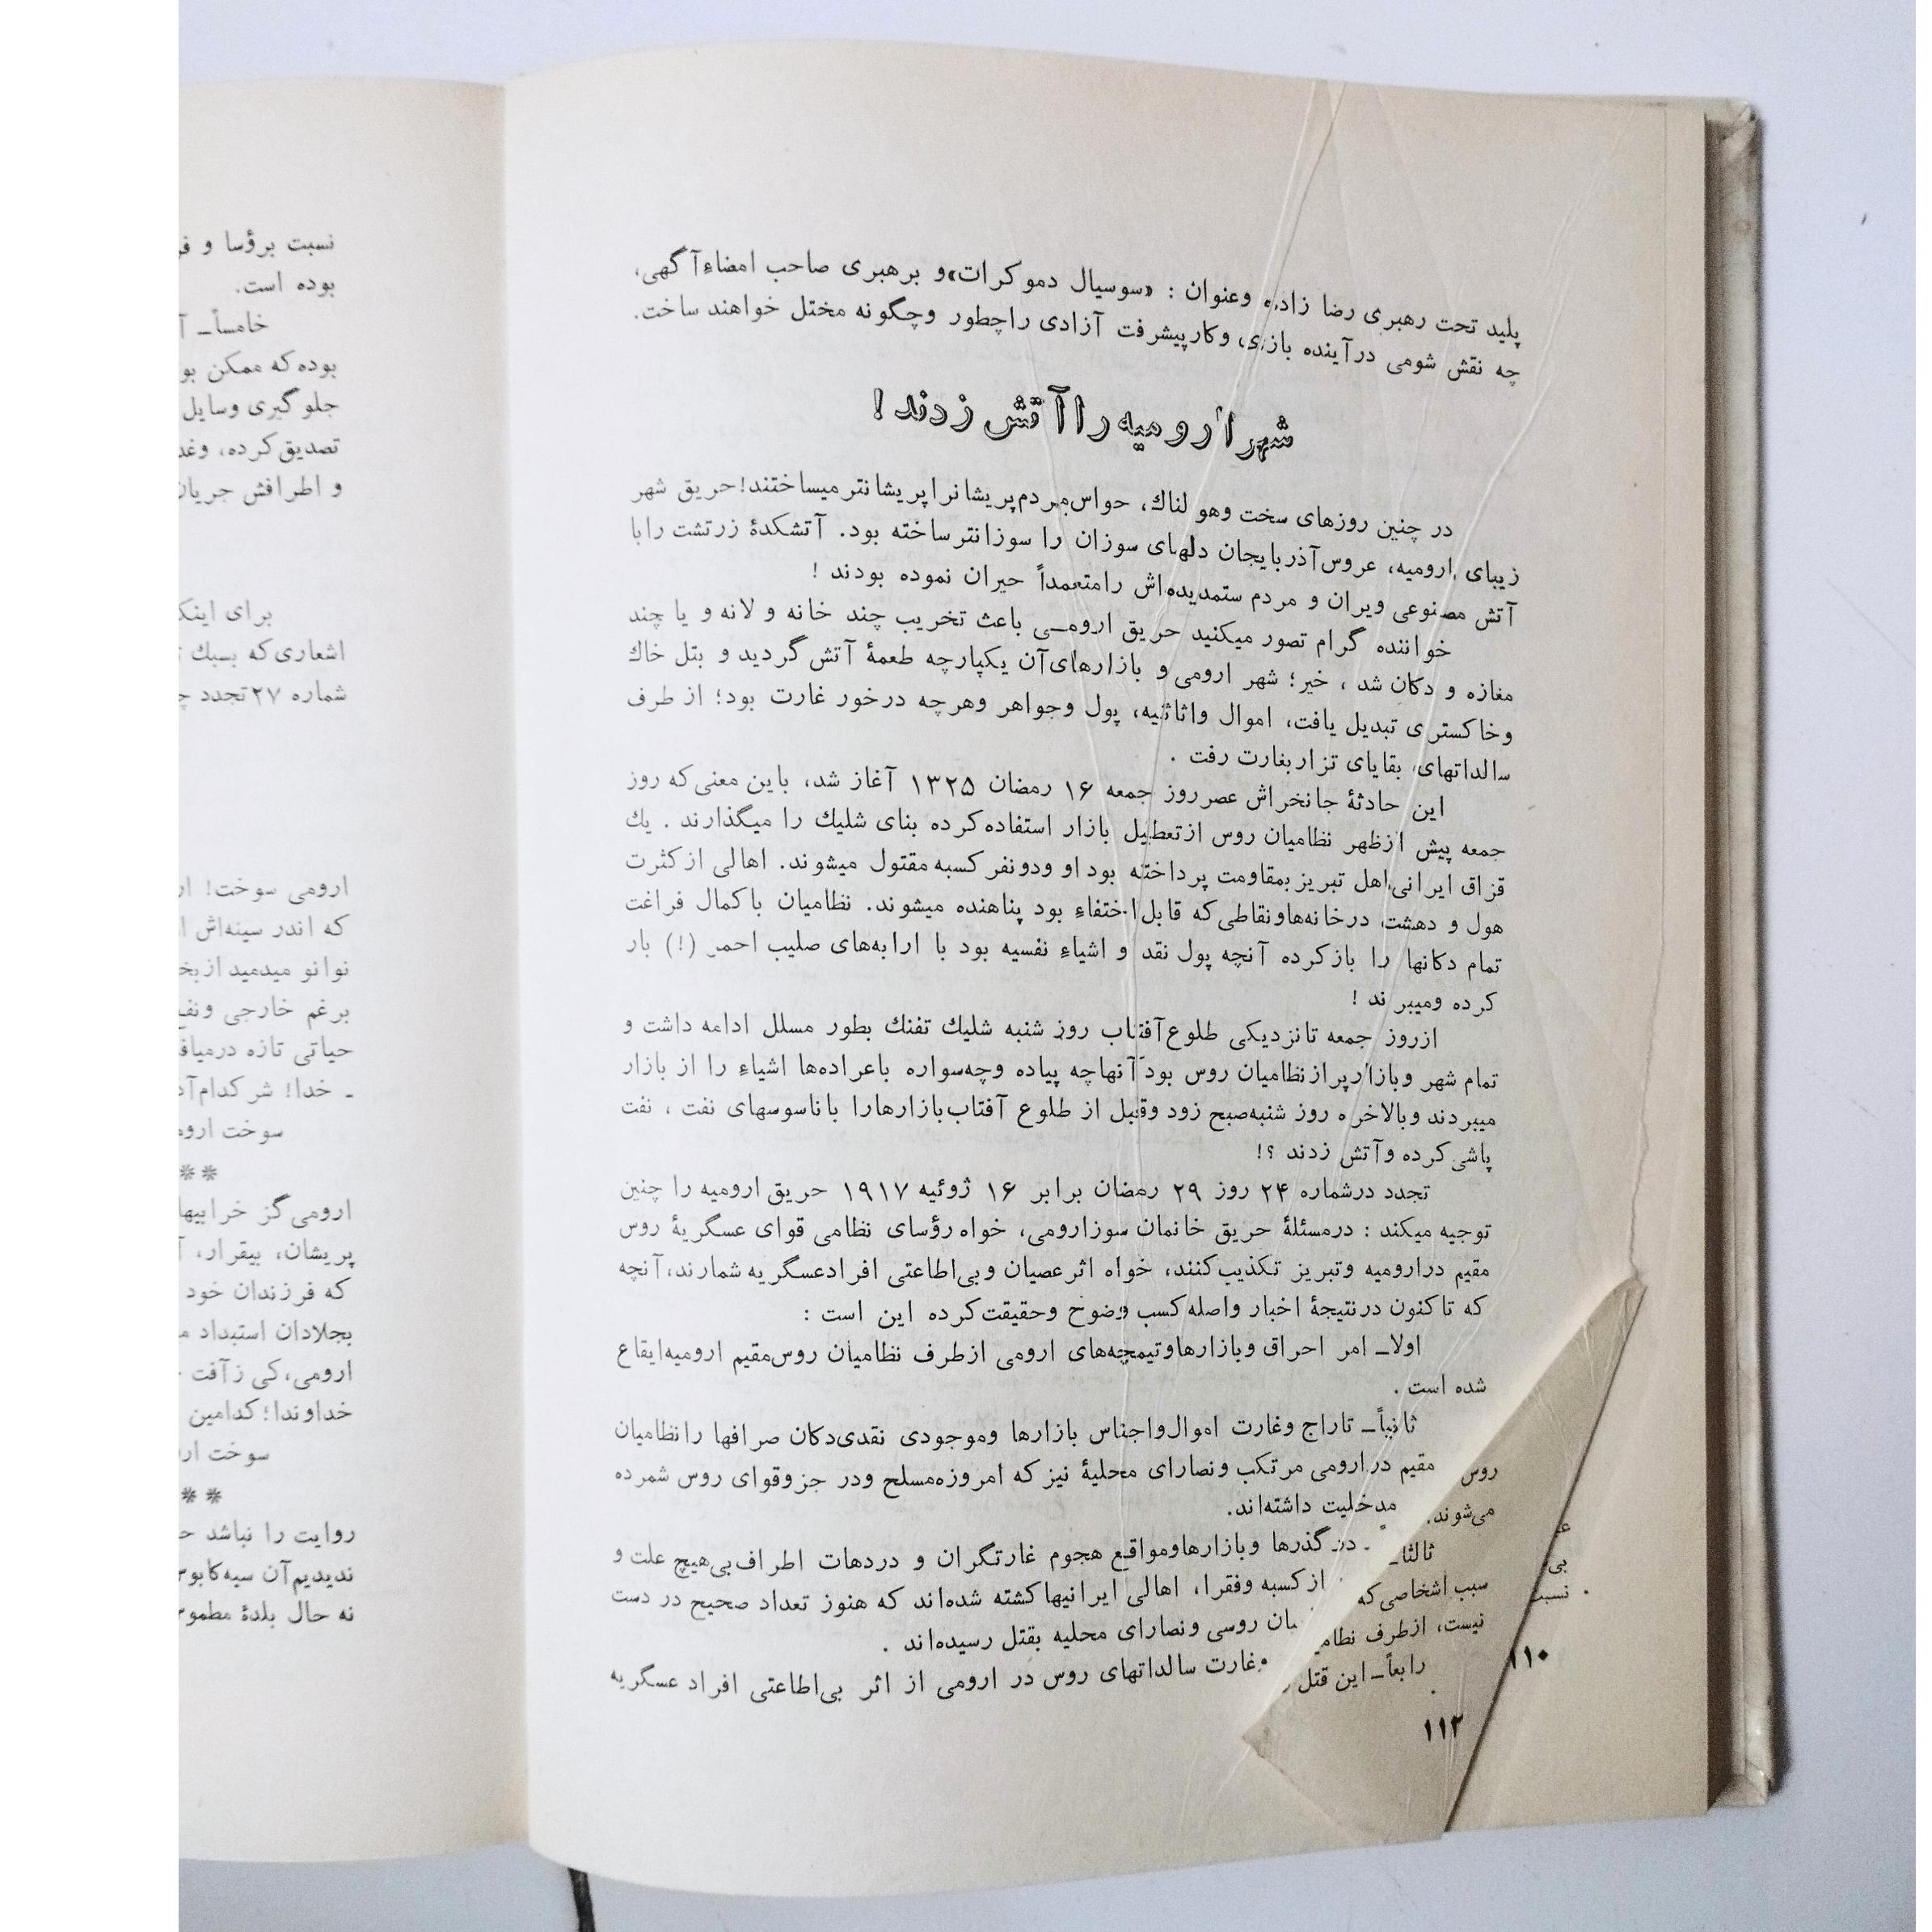 پلید تحت رهبری رضا زاده وعنوان : «سوسیال دموکرات»و برهبری صاحب امضاءآگهی،
چه نقش شومی درآینده بازی، وکارپیشرفت آزادی راچطور وچگونه مختل خواهند ساخت.
شهر ارومیه را آتش زدند !
در چنین روزهای سخت وهو لناك، حواس‌مردم‌پریشانراپریشانترمیساختند!حریق شهر
زیبای ارومیه، عروس‌آذربایجان دلهای سوزان را سوزانترساخته بود. آتشکدهٔ زرتشت رابا
آتش مصنوعی ویران و مردم ستمدیده‌اش رامتعمداً حیران نموده بودند !
خواننده گرام تصور میکنید حریق ارومـی باعث تخریب چند خانه و لانه و یا چند
مغازه و دکان شد ، خیر؛ شهر ارومی و بازارهای‌آن یکپارچه طعمهٔ آتش‌گردید و بتل خاك
وخاکستری تبدیل یافت، اموال واثاثیه، پول وجواهر وهرچه درخور غارت بود؛ از طرف
سالداتهای بقایای تزاربغارت رفت .
این حادثهٔ جانخراش عصرروز جمعه ۱۶ رمضان ۱۳۲۵ آغاز شد، باین معنی‌که روز
جمعه پیش ازظهر نظامیان روس ازتعطیل بازار استفاده‌کرده بنای شلیك را میگذارند . یك
قزاق ایرانی‌اهل تبریز بمقاومت پرداخته بود او ودونفرکسبه مقتول میشوند. اهالی ازکثرت
هول و دهشت درخانه‌هاونقاطی‌که قابل‌اختفاء بود پناهنده میشوند. نظامیان باکمال فراغت
تمام دکانها را بازکرده آنچه پول نقد و اشیاء نفسیه بود با ارابه‌های صلیب احمر (!) بار
کرده ومیبر ند !
ازروز جمعه تانزدیکی طلوع‌آفتاب روز شنبه شلیك تفنك بطور مسلل ادامه داشت و
تمام شهر وبازارپرازنظامیان روس بود آنهاچه پیاده وچه‌سواره باعراده‌ها اشیاء را از بازار
میبردند وبالاخره روز شنبه‌صبح زود وقبل از طلوع آفتاب‌بازارهارا باناسوسهای نفت ، نفت
پاشی‌کرده وآتش زدند ؟!
تجدد درشماره ۲۴ روز ۲۹ رمضان برابر ۱۶ ژوئیه ۱۹۱۷ حریق ارومیه را چنین
توجیه میکند : درمسئلهٔ حریق خانمان سوزارومی، خواه رؤسای نظامی قوای عسگریهٔ روس
مقیم درارومیه وتبریز تکذیب‌کنند، خواه اثرعصیان وبی‌اطاعتی افرادعسگریه شمارند،آنچه
که تاکنون درنتیجهٔ اخبار واصله‌کسب وضوح وحقیقت‌کرده این است :
اولاـ امر احراق وبازارهاوتیمچه‌های ارومی ازطرف نظامیان روس‌مقیم ارومیه‌ایقاع
شده است .
ثانیاًـ تاراج وغارت اموال‌واجناس بازارها وموجودی نقدی‌دکان صرافها رانظامیان
روس مقیم درارومی مرتکب ونصارای محلیهٔ نیزکه امروزه‌مسلح ودر جزوقوای روس شمرده
می‌شوند. مدخلیت داشته‌اند.
ثالثاـ درگذرها وبازارهاومواقع هجوم غارتگران و دردهات اطراف‌بی‌هیچ علت و
سبب اشخاصی‌که ازکسبه وفقرا، اهالی ایرانیهاکشته شده‌اند که هنوز تعداد صحیح در دست
نیست، ازطرف روسی ونصارای محلیه بقتل رسیده‌اند .
رابعاًـ این قتل وغارت سالداتهای روس در ارومی از اثر بی‌اطاعتی افراد عسگریه
۱۱۲
بی
نسبت
۱۱۰
نسبت برؤسا و
بوده است.
خامساًـ
بوده‌که ممکن
جلوگیری وسایل
تصدیق‌کرده،
و اطرافش
برای
اشعاری‌که بسبك
شماره ۲۷تجدد
ارومی سوخت!
که اندر سینه‌اش
نوانو میدمید
برغم خارجی
حیاتی تازه
ـ خدا! شر
سوخت
**
ارومی‌گز
پریشان، بیقرار،
که فرزندان خود
بجلادان استبداد
ارومی،کی زآفت
خداوندا؛کدامین
سوخت
**
روایت را نباشد
ندیدیم‌آن
نه حال بلدهٔ